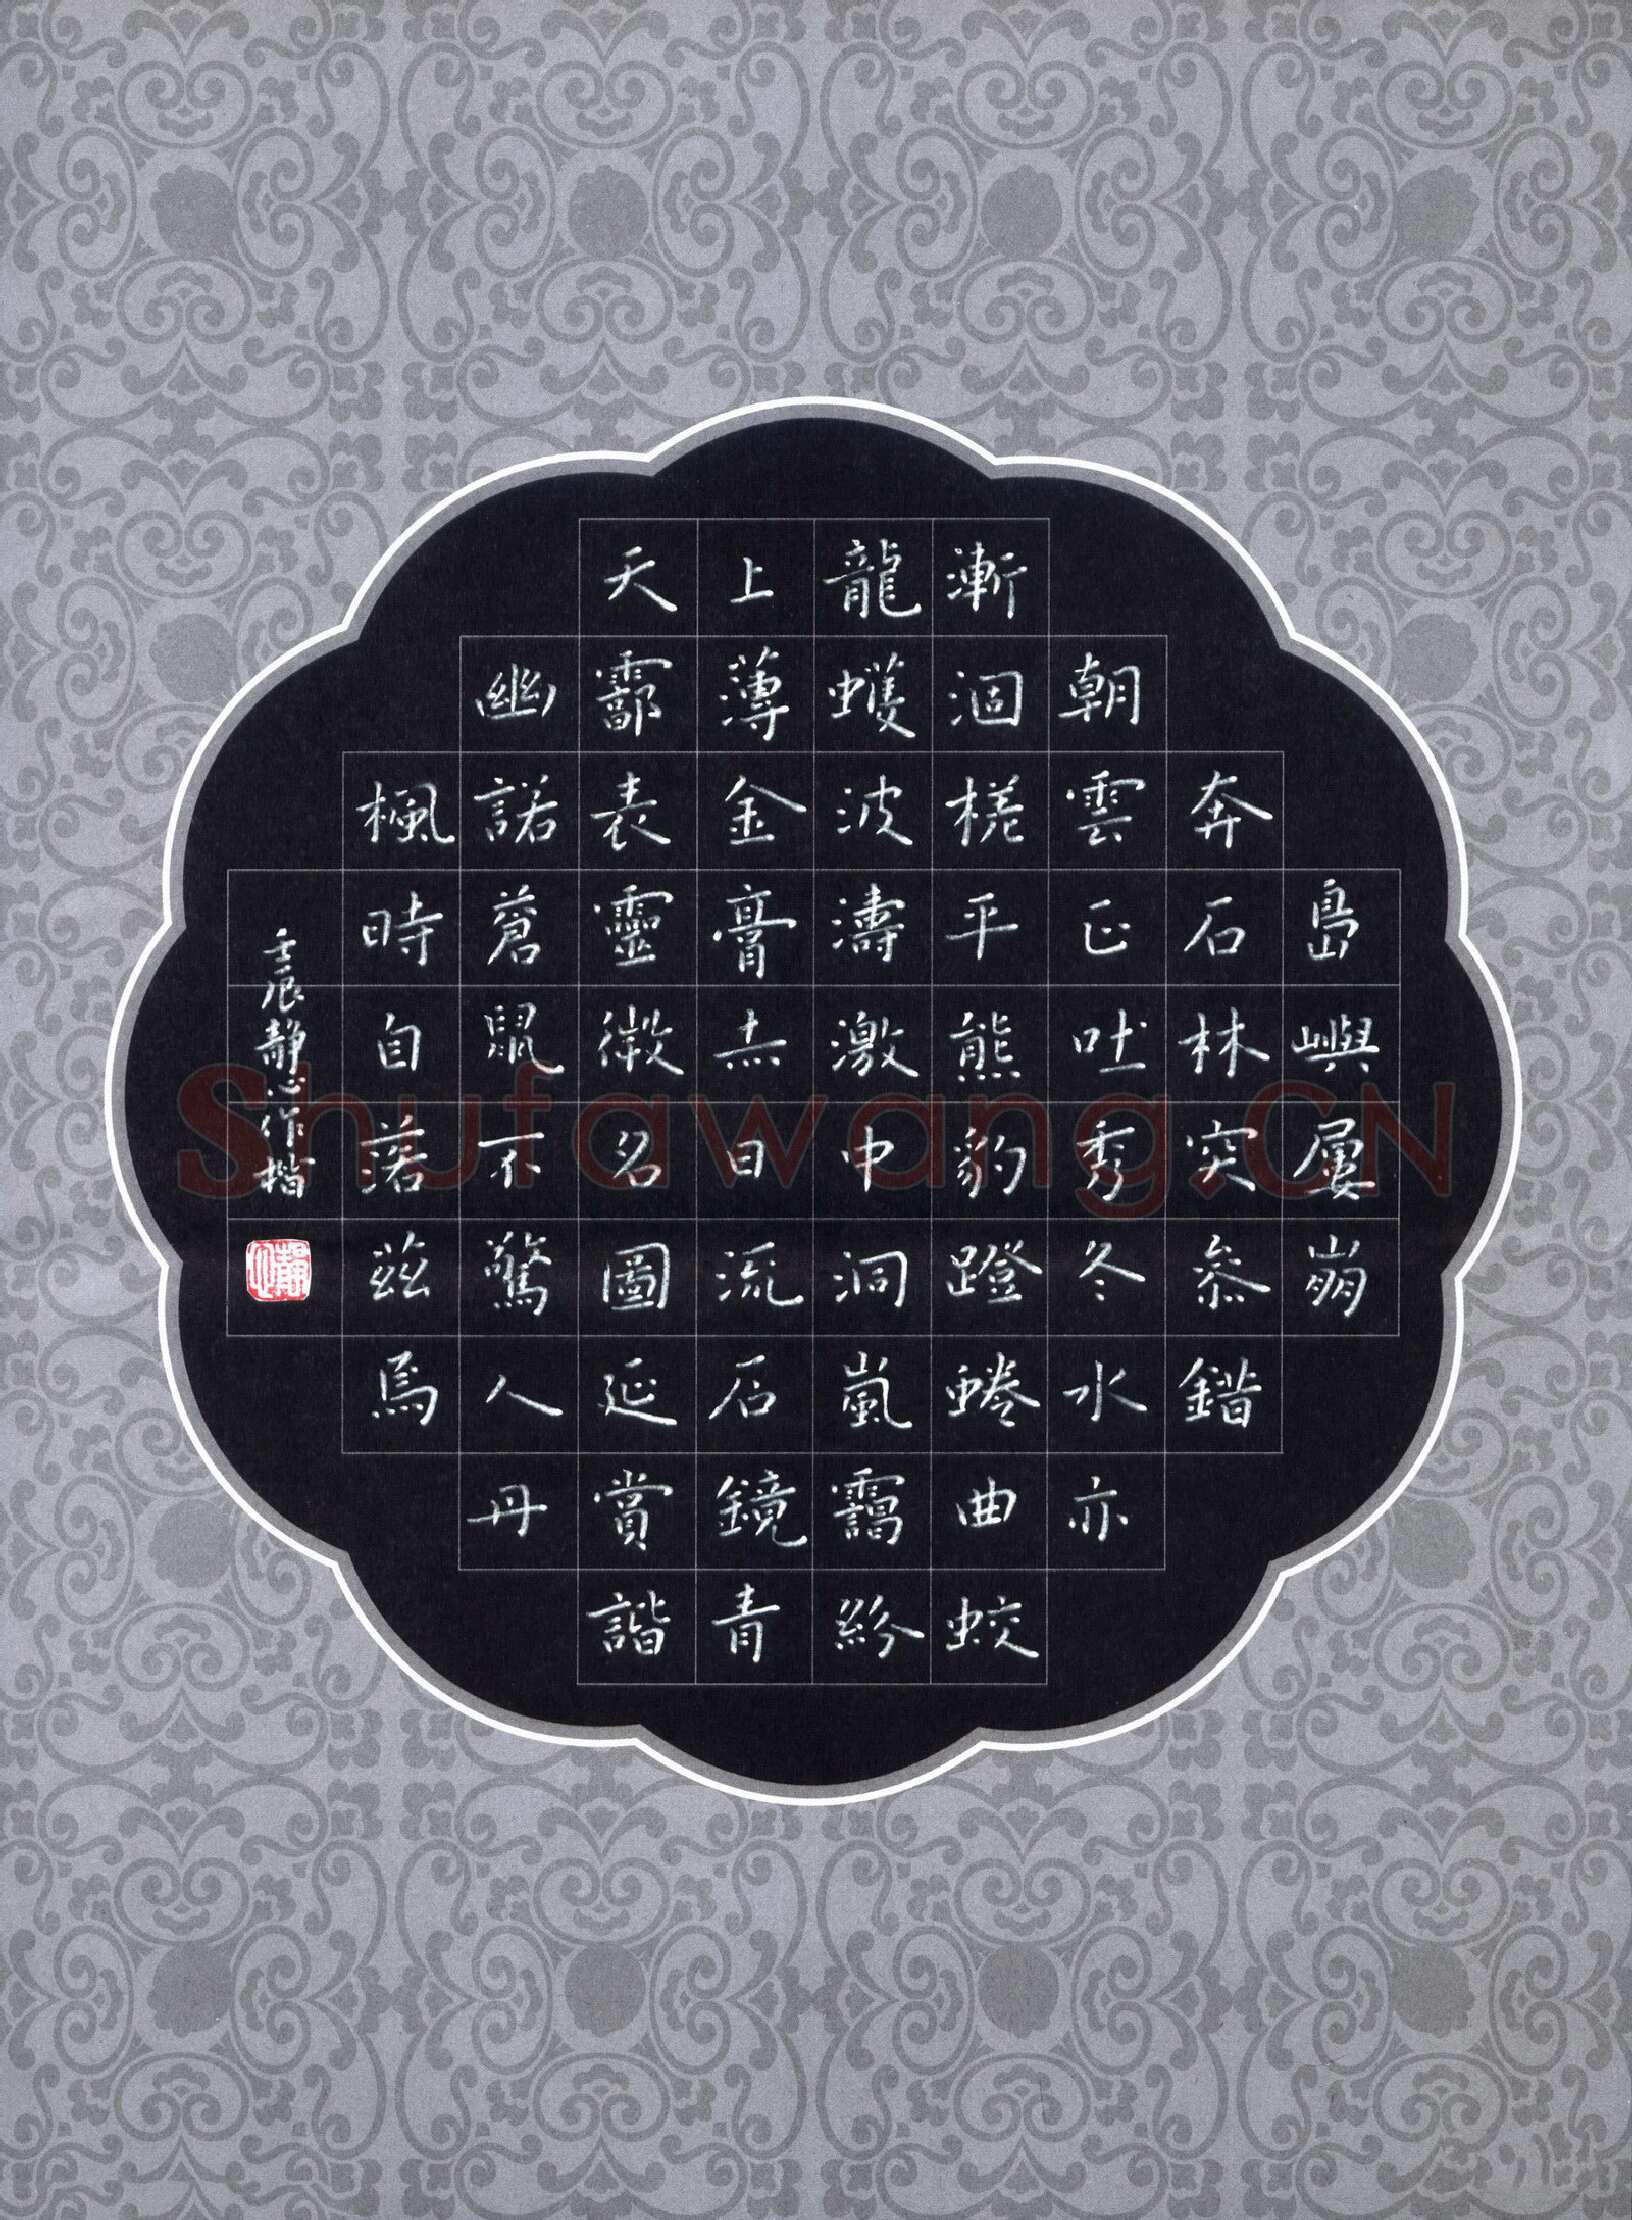 島嶼屢崩
奔石林突叅鍇
朝雲正吐秀冬水亦
漸涸槎平熊豹蹬蜷曲蛟
龍蠖波濤激中洞嵐靄紛
上薄金膏赤日流石鏡青
天霩表靈徵名圖延賞諧
幽諾蒼鼠不驚人丹
楓時自落茲焉
壬辰靜心作楷
Shufawang.CN